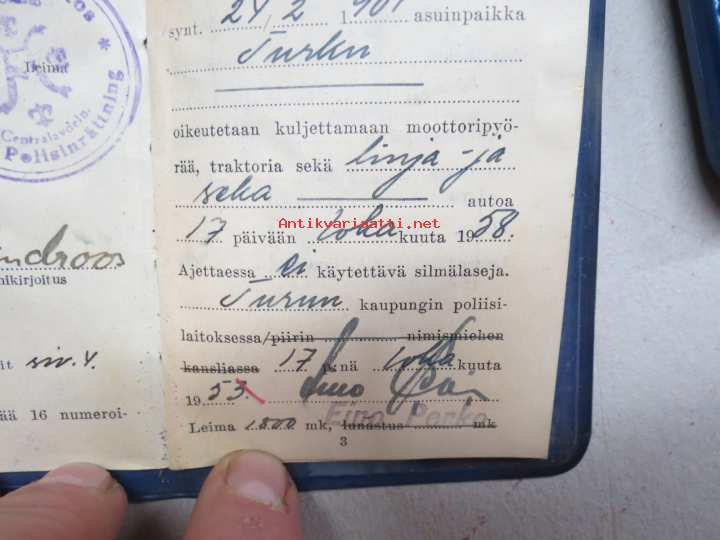 Leima
Centralavdeln.
Polisinrättning
ndroos
nikirjoitus
siv. 4.
ää 16 numeroi-
synt. 24/2 1901 asuinpaikka
Turku
oikeutetaan kuljettamaan moottoripyö-
rää, traktoria sekä linja- ja
seka autoa
Antikvariaatti.net
17 päivään loka kuuta 1958.
Ajettaessa ei käytettävä silmälaseja.
Turun kaupungin poliisi-
laitoksessa/piirin nimismiehen
kansliassa 17 p:nä loka kuuta
1953.
Eino Parko
Leima 1.800 mk, lunastus mk
3